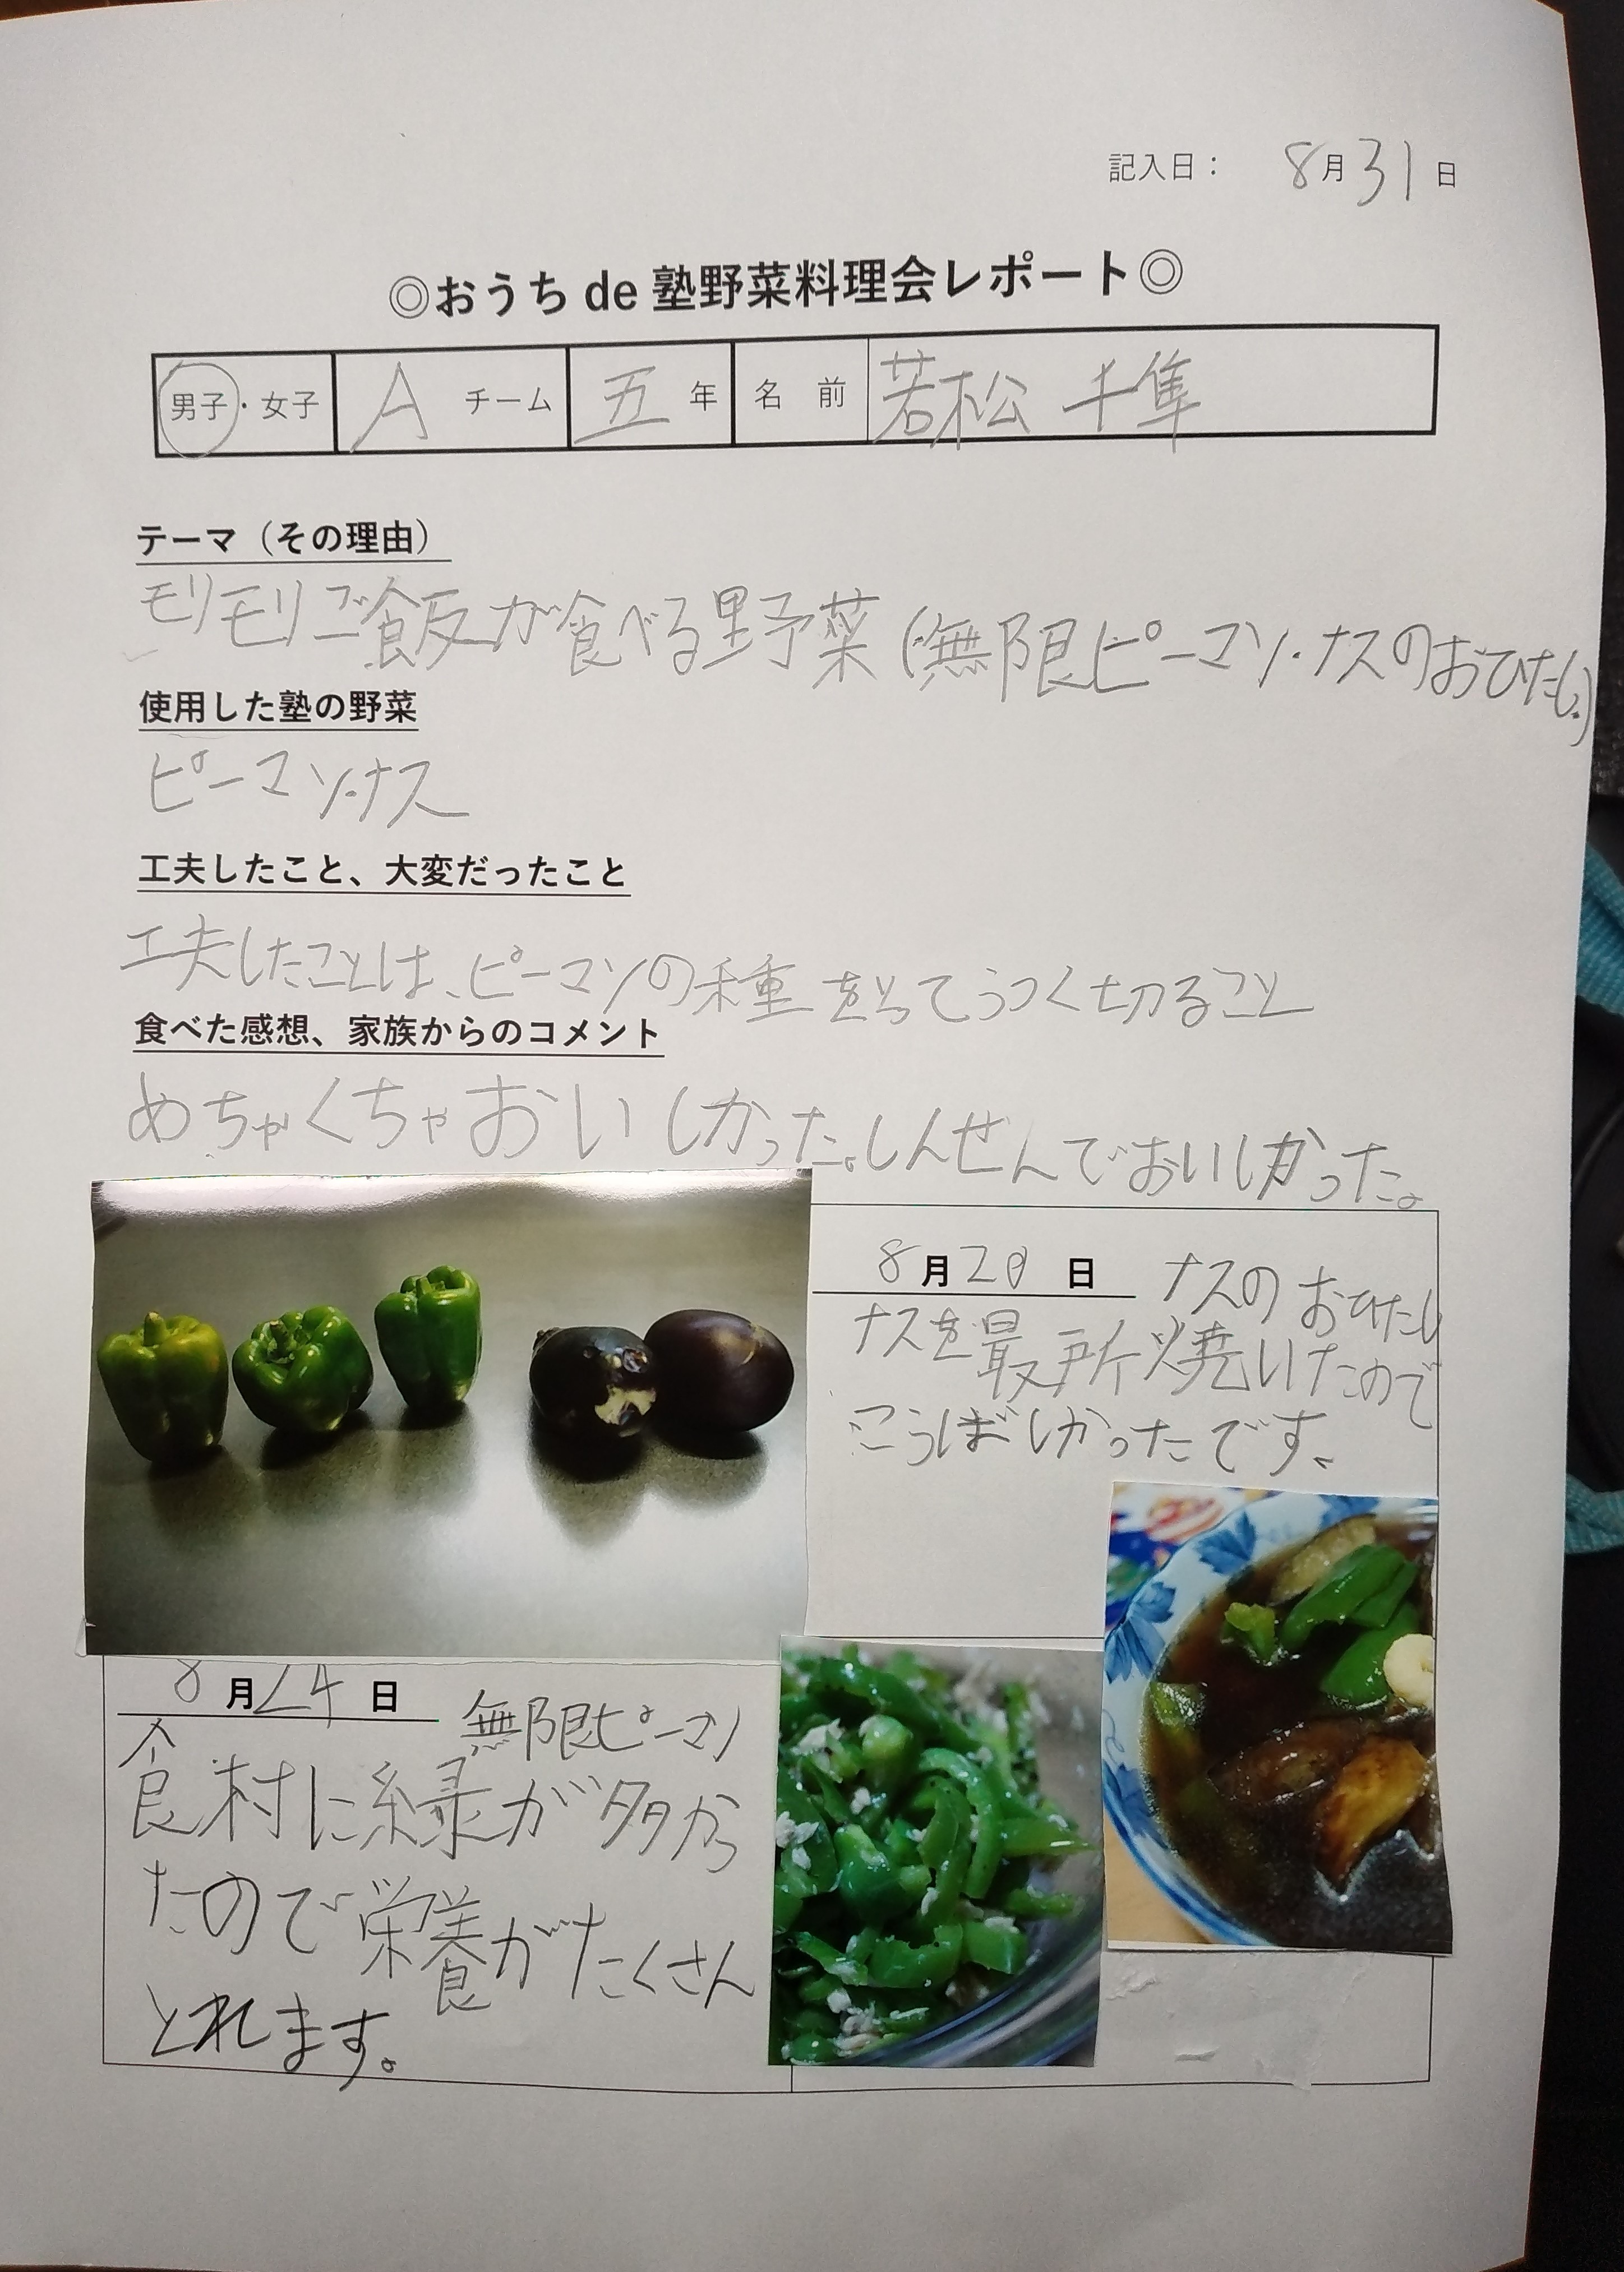 記入日： 8月31日
◎おうち de 塾野菜料理会レポート◎
男子・女子 A チーム 五 年 名 前 若松 千隼
テーマ（その理由）
モリモリご飯が食べる野菜(無限ピーマン・ナスのおひたし)
使用した塾の野菜
ピーマン・ナス
工夫したこと、大変だったこと
工夫したことは、ピーマンの種をとってうつく切ること
食べた感想、家族からのコメント
めちゃくちゃおいしかった。しんせんでおいしかった。
8月20日 ナスのおひたし
ナスを最所焼いたので
こうばしかったです。
8月24日 無限ピーマン
食材に緑が多かっ
たので栄養がたくさん
とれます。